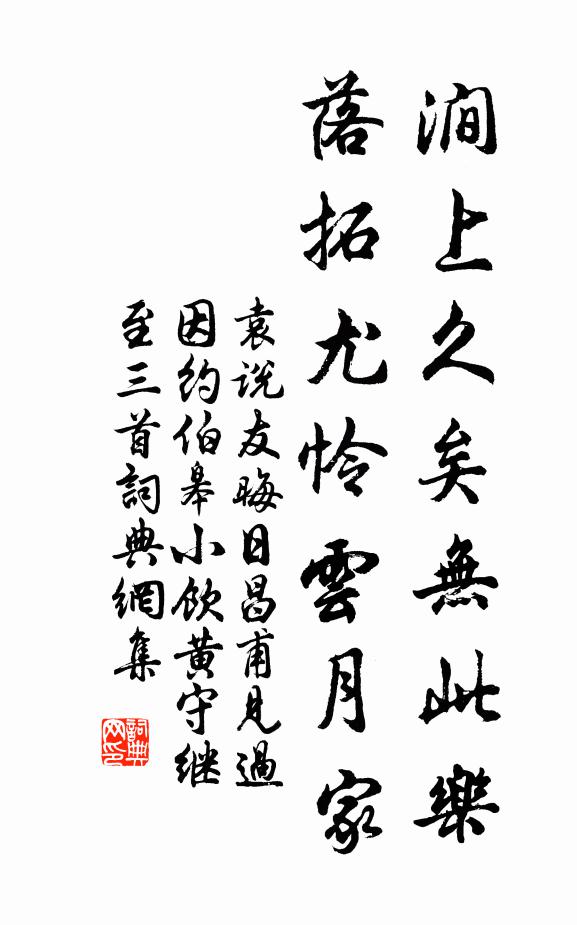 澗上久矣無此樂
落拓尤怜雲月家
袁说友晦日昌甫見過
因约伯皋小飲黄守继
至三首詞典網集
詞典网印